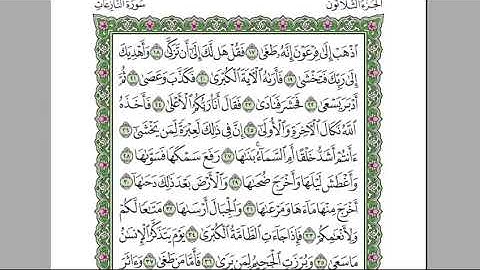 الجزء الثلاثون سورة النازعات
ٱذْهَبْ إِلَىٰ فِرْعَوْنَ إِنَّهُۥ طَغَىٰ ١٧ فَقُلْ هَل لَّكَ إِلَىٰٓ أَن تَزَكَّىٰ ١٨ وَأَهْدِيَكَ
إِلَىٰ رَبِّكَ فَتَخْشَىٰ ١٩ فَأَرَىٰهُ ٱلْءَايَةَ ٱلْكُبْرَىٰ ٢٠ فَكَذَّبَ وَعَصَىٰ ٢١ ثُمَّ
أَدْبَرَ يَسْعَىٰ ٢٢ فَحَشَرَ فَنَادَىٰ ٢٣ فَقَالَ أَنَا۠ رَبُّكُمُ ٱلْأَعْلَىٰ ٢٤ فَأَخَذَهُ
ٱللَّهُ نَكَالَ ٱلْءَاخِرَةِ وَٱلْأُولَىٰٓ ٢٥ إِنَّ فِى ذَٰلِكَ لَعِبْرَةً لِّمَن يَخْشَىٰٓ ٢٦
ءَأَنتُمْ أَشَدُّ خَلْقًا أَمِ ٱلسَّمَآءُ ۚ بَنَىٰهَا ٢٧ رَفَعَ سَمْكَهَا فَسَوَّىٰهَا ٢٨
وَأَغْطَشَ لَيْلَهَا وَأَخْرَجَ ضُحَىٰهَا ٢٩ وَٱلْأَرْضَ بَعْدَ ذَٰلِكَ دَحَىٰهَآ ٣٠
أَخْرَجَ مِنْهَا مَآءَهَا وَمَرْعَىٰهَا ٣١ وَٱلْجِبَالَ أَرْسَىٰهَا ٣٢ مَتَٰعًا لَّكُمْ
وَلِأَنْعَٰمِكُمْ ٣٣ فَإِذَا جَآءَتِ ٱلطَّآمَّةُ ٱلْكُبْرَىٰ ٣٤ يَوْمَ يَتَذَكَّرُ ٱلْإِنسَٰنُ
مَا سَعَىٰ ٣٥ وَبُرِّزَتِ ٱلْجَحِيمُ لِمَن يَرَىٰ ٣٦ فَأَمَّا مَن طَغَىٰ ٣٧ وَءَاثَرَ